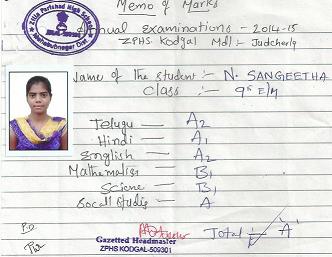 Memo of Marks
Zilla Parishad High School
Annual Examinations - 2014-15
ZPHS Kodgal Mdl:- Judcherla
Name of the student :- N. SANGEETHA
Class :- 9th E/M
Telugu — A2
Hindi — A1
English — A2
Mathematies — B1
Sciene — B1
Socall Studie — A
Total A
Gazetted Headmaster
ZPHS KODGAL-509301